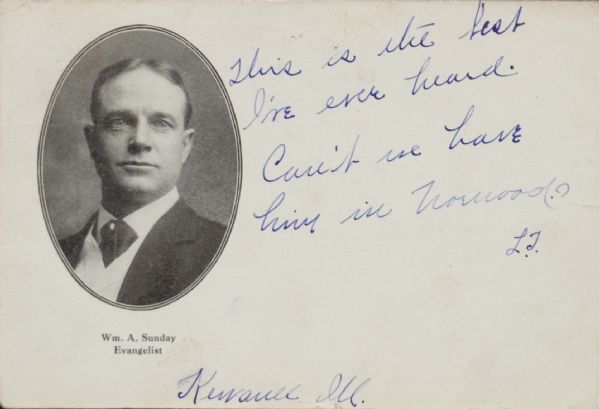 This is the best
I've ever heard.
Can't we have
him in Norwood?
L.T.
Wm. A. Sunday
Evangelist
Kewanee Ill.